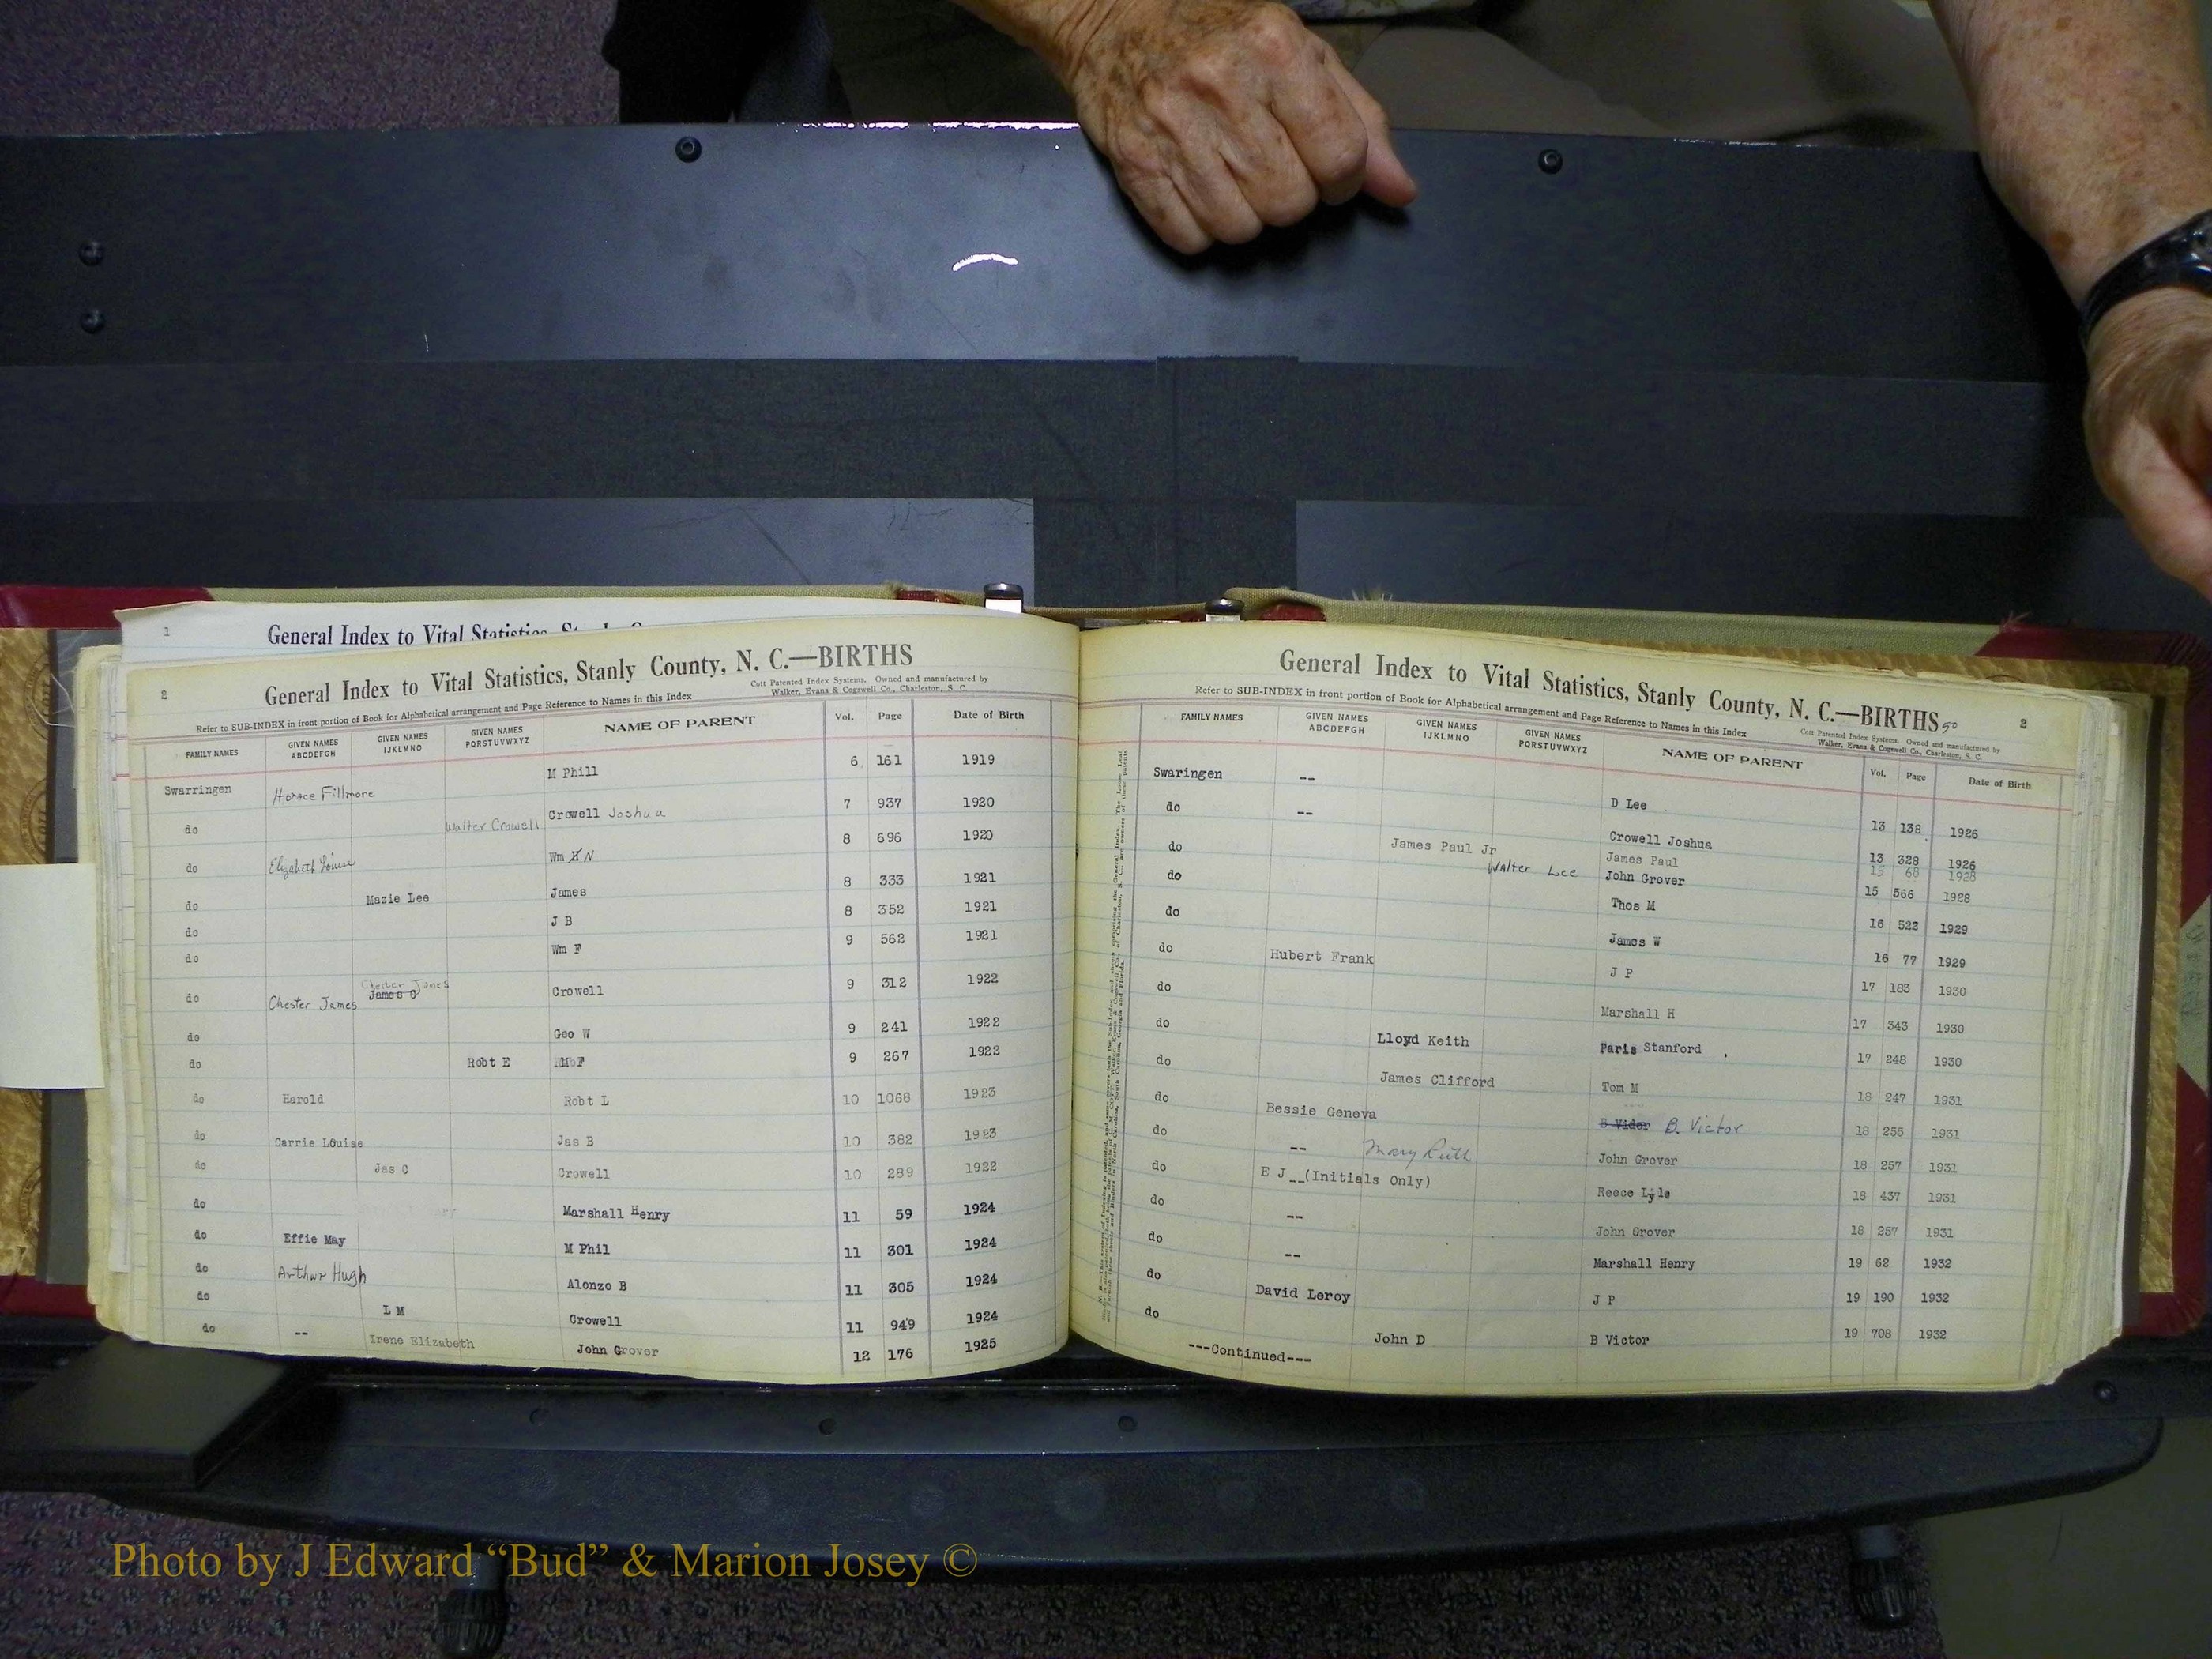 1
General Index to Vital Statistics, St
2
General Index to Vital Statistics, Stanly County, N. C.—BIRTHS
Cott Patented Index Systems. Owned and manufactured by
Walker, Evans & Cogswell Co., Charleston, S. C.
Refer to SUB-INDEX in front portion of Book for Alphabetical arrangement and Page Reference to Names in this Index
FAMILY NAMES GIVEN NAMES ABCDEFGH GIVEN NAMES IJKLMNO GIVEN NAMES PQRSTUVWXYZ NAME OF PARENT Vol. Page Date of Birth
Swarringen Horace Fillmore M Phill 6 161 1919
do Walter Crowell Crowell Joshua 7 937 1920
do Elizabeth Louise Wm H N 8 696 1920
do Mazie Lee James 8 333 1921
do J B 8 352 1921
do Wm F 9 562 1921
do Chester James Chester James James C Crowell 9 312 1922
do Geo W 9 241 1922
do Robt E M F 9 267 1922
do Harold Robt L 10 1068 1923
do Carrie Louise Jas B 10 382 1923
do Jas C Crowell 10 289 1922
do Marshall Henry 11 59 1924
do Effie May M Phil 11 301 1924
do Arthur Hugh Alonzo B 11 305 1924
do L M Crowell 11 949 1924
do -- Irene Elizabeth John Grover 12 176 1925
General Index to Vital Statistics, Stanly County, N. C.—BIRTHS 50 2
Refer to SUB-INDEX in front portion of Book for Alphabetical arrangement and Page Reference to Names in this Index
Cott Patented Index Systems. Owned and manufactured by
Walker, Evans & Cogswell Co., Charleston, S. C.
FAMILY NAMES GIVEN NAMES ABCDEFGH GIVEN NAMES IJKLMNO GIVEN NAMES PQRSTUVWXYZ NAME OF PARENT Vol. Page Date of Birth
Swaringen -- D Lee 13 138 1926
do -- Crowell Joshua 13 328 1926
do James Paul Jr James Paul 15 68 1928
do Walter Lee John Grover 15 566 1928
do Thos M 16 522 1929
do Hubert Frank James W 16 77 1929
do J P 17 183 1930
do Marshall H 17 343 1930
do Lloyd Keith Paris Stanford 17 248 1930
do James Clifford Tom M 18 247 1931
do Bessie Geneva B Vidor B. Victor 18 255 1931
do -- Mary Ruth John Grover 18 257 1931
do E J __(Initials Only) Reece Lyle 18 437 1931
do -- John Grover 18 257 1931
do -- Marshall Henry 19 62 1932
do David Leroy J P 19 190 1932
do John D B Victor 19 708 1932
---Continued---
Photo by J Edward “Bud” & Marion Josey ©